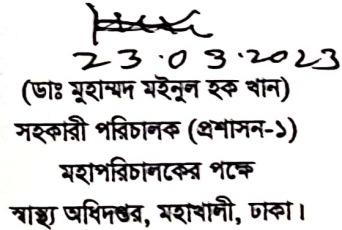 23.03.2023
(ডাঃ মুহাম্মদ মইনুল হক খান)
সহকারী পরিচালক (প্রশাসন-১)
মহাপরিচালকের পক্ষে
স্বাস্থ্য অধিদপ্তর, মহাখালী, ঢাকা।